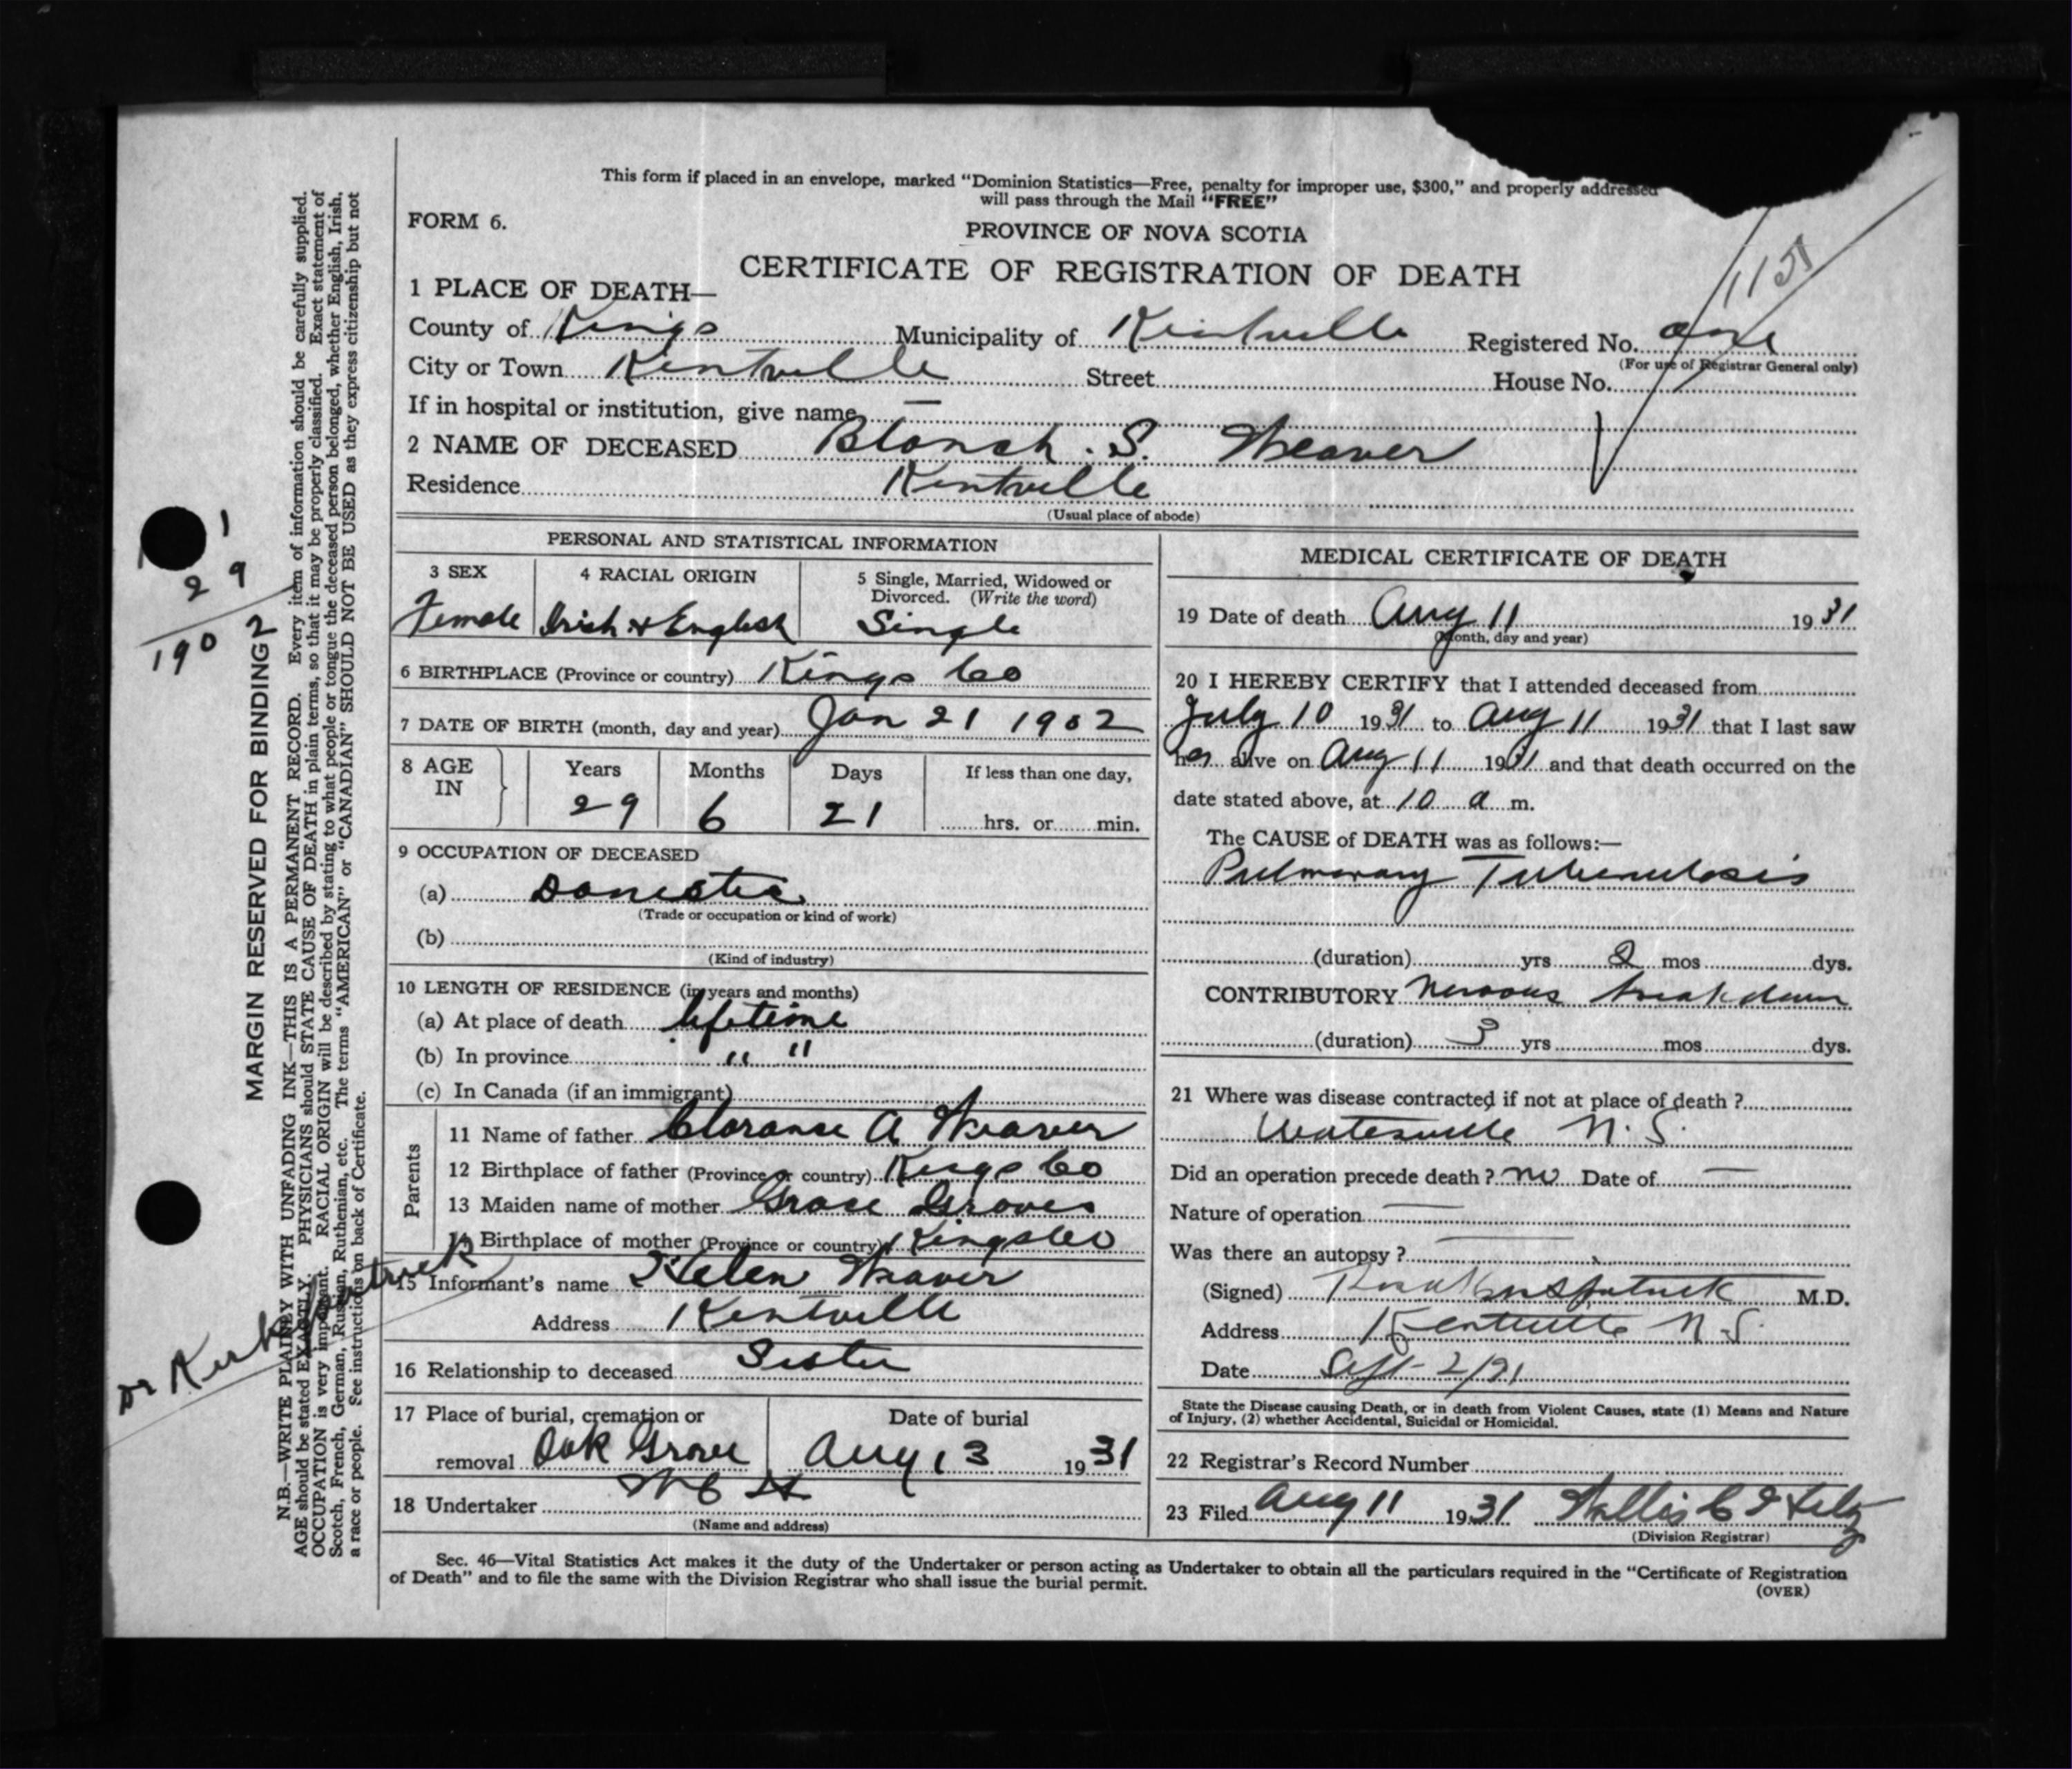 This form if placed in an envelope, marked "Dominion Statistics—Free, penalty for improper use, $300," and properly addressed
will pass through the Mail "FREE"
FORM 6.
PROVINCE OF NOVA SCOTIA
CERTIFICATE OF REGISTRATION OF DEATH
1 PLACE OF DEATH—
County of Kings Municipality of Kentville Registered No.
(For use of Registrar General only)
City or Town Kentville Street House No.
If in hospital or institution, give name —
2 NAME OF DECEASED Blanch. S. Weaver
Residence Kentville
(Usual place of abode)
PERSONAL AND STATISTICAL INFORMATION
3 SEX 4 RACIAL ORIGIN 5 Single, Married, Widowed or
Divorced. (Write the word)
Female Irish & English Single
6 BIRTHPLACE (Province or country) Kings Co
7 DATE OF BIRTH (month, day and year) Jan 21 1902
8 AGE IN Years Months Days If less than one day,
29 6 21 hrs. or min.
9 OCCUPATION OF DECEASED
(a) Domestic
(Trade or occupation or kind of work)
(b)
(Kind of industry)
10 LENGTH OF RESIDENCE (in years and months)
(a) At place of death lifetime
(b) In province " "
(c) In Canada (if an immigrant)
Parents
11 Name of father Clarance A Weaver
12 Birthplace of father (Province or country) Kings Co
13 Maiden name of mother Grace Groves
14 Birthplace of mother (Province or country) Kings Co
15 Informant's name Helen Weaver
Address Kentville
16 Relationship to deceased Sister
17 Place of burial, cremation or Date of burial
removal Oak Grove Aug 13 1931
18 Undertaker
(Name and address)
MEDICAL CERTIFICATE OF DEATH
19 Date of death Aug 11 1931
(Month, day and year)
20 I HEREBY CERTIFY that I attended deceased from
July 10 1931 to Aug 11 1931 that I last saw
her alive on Aug 11 1931 and that death occurred on the
date stated above, at 10 a m.
The CAUSE of DEATH was as follows:—
Pulmonary Tuberculosis
(duration) yrs 2 mos dys.
CONTRIBUTORY Nervous breakdown
(duration) 3 yrs mos dys.
21 Where was disease contracted if not at place of death?
Waterville N.S.
Did an operation precede death? no Date of —
Nature of operation —
Was there an autopsy? —
(Signed) Kirkpatrick M.D.
Address Kentville N.S.
Date Sept 2/31
State the Disease causing Death, or in death from Violent Causes, state (1) Means and Nature
of Injury, (2) whether Accidental, Suicidal or Homicidal.
22 Registrar's Record Number
23 Filed Aug 11 1931
(Division Registrar)
Sec. 46—Vital Statistics Act makes it the duty of the Undertaker or person acting as Undertaker to obtain all the particulars required in the "Certificate of Registration
of Death" and to file the same with the Division Registrar who shall issue the burial permit.
(OVER)
MARGIN RESERVED FOR BINDING
N.B.—WRITE PLAINLY WITH UNFADING INK—THIS IS A PERMANENT RECORD. Every item of information should be carefully supplied.
AGE should be stated EXACTLY. PHYSICIANS should STATE CAUSE OF DEATH in plain terms, so that it may be properly classified. Exact statement of
OCCUPATION is very important. RACIAL ORIGIN will be described by stating to what people or tongue the deceased person belonged, whether English, Irish,
Scotch, French, German, Russian, Ruthenian, etc. The terms "AMERICAN" or "CANADIAN" SHOULD NOT BE USED as they express citizenship but not
a race or people. See instructions on back of Certificate.
1
29
1902
Dr Kirkpatrick